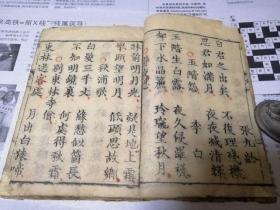 張九齡
自君之出矣 不復理殘機
思君如滿月 夜夜減清輝
玉階怨 李白
玉階生白露 夜久侵羅襪
却下水晶簾 玲瓏望秋月
牀前明月光 疑是地上霜
舉頭望明月 低頭思故鄉
秋浦歌
白髮三千丈 緣愁似箇長
不知明鏡裏 何處得秋霜
別東林寺僧
東林送客處 月出白猿啼